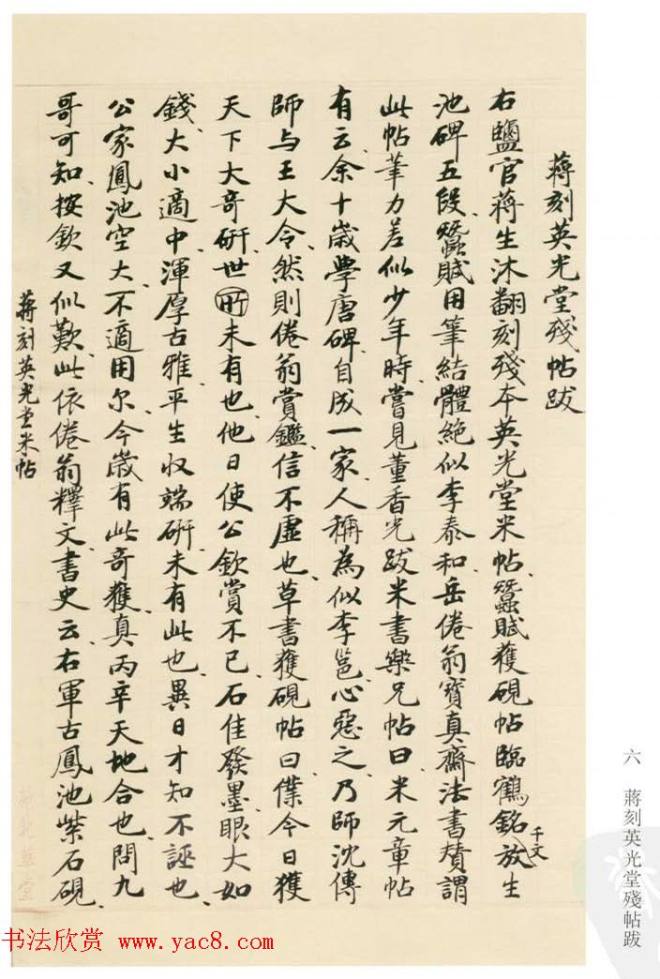 蒋刻英光堂殘帖跋
右鹽官蒋生沐翻刻殘本英光堂米帖、蠶賦獲硯帖臨鶴銘放生
千文
池碑五段、蠶賦用筆結體絶似李泰和、岳倦翁寳真齋法書賛謂
此帖筆力差似少年時、嘗見董香光跋米書樂兄帖曰米元章帖
有云、余十歲學唐碑、自成一家、人稱為似李邕、心惡之、乃師沈傳
師与王大令、然則倦翁賞鑑信不虚也、草書獲硯帖曰、僕今日獲
天下大奇研、世所未有也、他日使公欽賞不已、石佳發墨、眼大如
錢、大小適中、渾厚古雅、平生収端研、未有此也、異日才知不誣也、
公家鳳池空大、不適用尔、今歲有此奇獲、真丙辛天地合也、問九
哥可知、按欽又似歎、此依倦翁釋文、書史云、右軍古鳳池紫石硯、
蒋刻英光堂米帖
六 蔣刻英光堂殘帖跋
书法欣赏 www.yac8.com